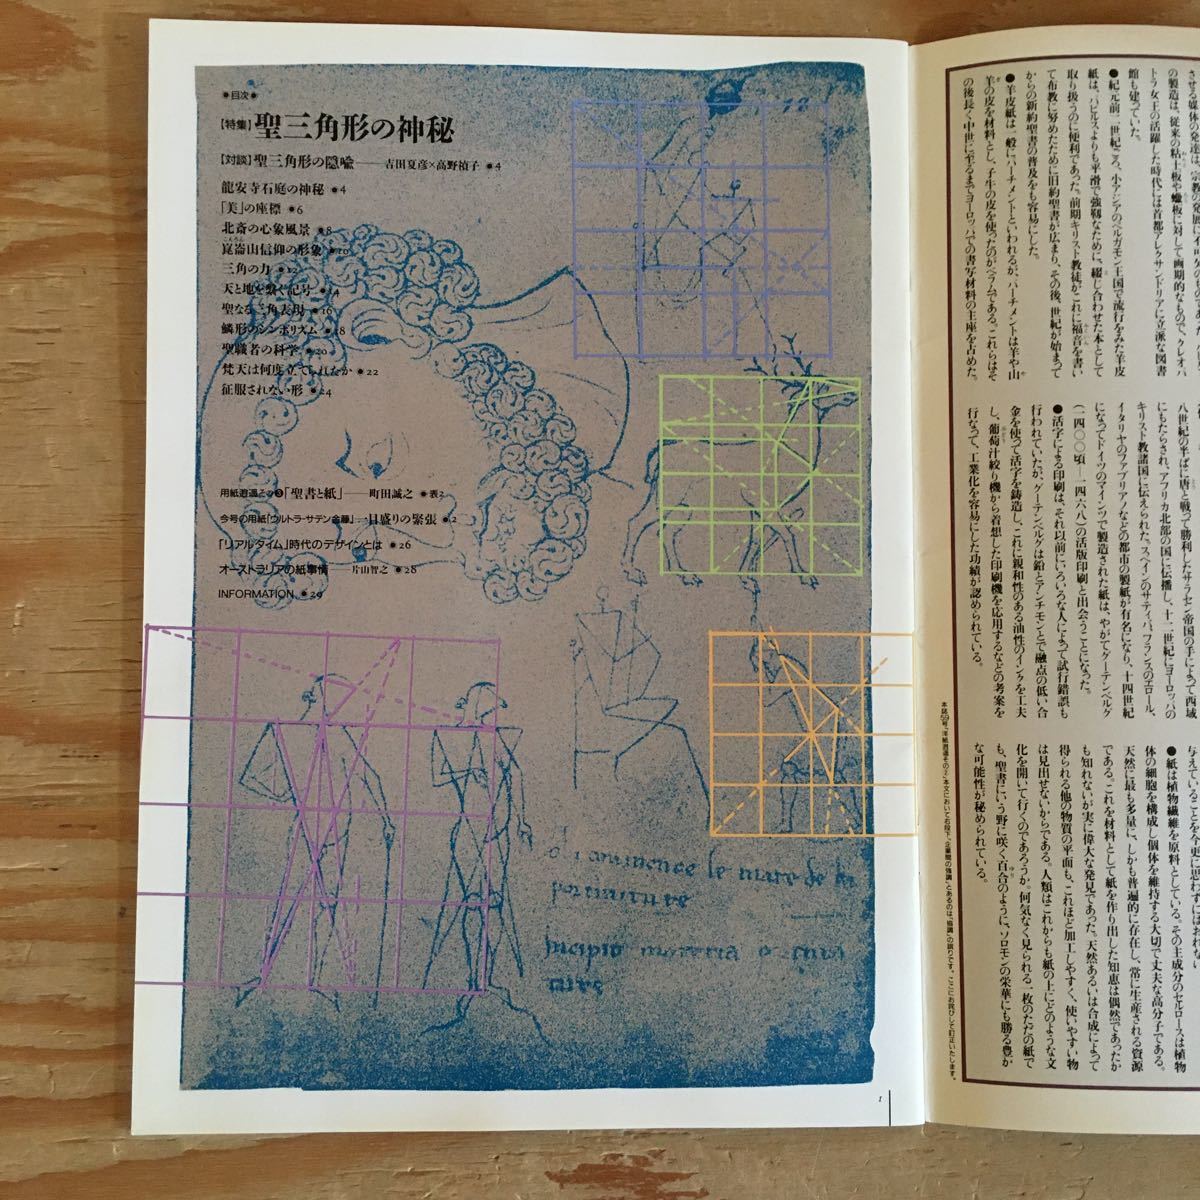 ●目次●
【特集】聖三角形の神秘
【対談】聖三角形の隠喩——吉田夏彦×高野禎子 ●4
龍安寺石庭の神秘 ●4
「美」の座標 ●6
北斎の心象風景 ●8
崑崙山信仰の形象 ●10
こんろん
三角の力 ●12
天と地を繋ぐ記号 ●14
聖なる三角表現 ●16
鱗形のシンボリズム ●18
聖職者の科学 ●20
梵天は何度立てられたか ●22
征服されない形 ●24
用紙逍遥その❸「聖書と紙」——町田誠之 ●表2
今号の用紙「ウルトラ・サテン金藤」…目盛りの緊張 ●2
「リアルタイム」時代のデザインとは ●26
オーストラリアの紙事情 片山智之 ●28
INFORMATION ●29
1
させる媒体の発達は、宗教の発展に
の製造は、従来の粘土板や蠟板に対して画期的なもので、クレオパ
トラ女王の活躍した時代には首都アレクサンドリアに立派な図書
館も建っていた。
●紀元前二世紀ごろ、小アジアのペルガモン王国で流行をみた羊皮
紙は、パピルスよりも平滑で強靱なために、綴じ合わせた本として
取り扱うのに便利であった。前期キリスト教徒がこれに福音を書い
て布教に努めたために旧約聖書が広まり、その後、世紀が始まって
からの新約聖書の普及をも容易にした。
●羊皮紙は一般にパーチメントといわれるが、パーチメントは羊や山
羊の皮を材料とし、子牛の皮を使ったのがベラムである。これらはそ
の後長く中世に至るまでヨーロッパでの書写材料の主座を占めた。
八世紀の半ばに唐と戦って勝利したサラセン帝国の手によって西域
にもたらされ、アフリカ北部の国に伝播し、十二世紀にヨーロッパの
キリスト教諸国に伝えられた。スペインのサティバ、フランスのエロール、
イタリヤのファブリアノなどの都市の製紙が有名になり、十四世紀
になってドイツのマインツで製造された紙は、やがてグーテンベルグ
(一四〇〇頃—一四六八)の活版印刷と出会うことになった。
●活字による印刷は、それ以前にいろいろな人によって試行錯誤も
行われていたが、グーテンベルグは鉛とアンチモンとで融点の低い合
金を使って活字を鋳造し、これに親和性のある油性のインクを工夫
し、葡萄汁絞り機から着想した印刷機を応用するなどの考案を
行なって、工業化を容易にした功績が認められている。
与えていることを今更に思わずにはおれない
●紙は植物繊維を原料としている。その主成分のセルロースは植物
体の細胞を構成し個体を維持する大切で丈夫な高分子である。
天然に最も多量に、しかも普遍的に存在し、常に生産される資源
である。これを材料として紙を作り出した知恵は偶然であったか
も知れないが実に偉大な発見であった。天然あるいは合成によって
得られる他の物質の平面も、これほど加工しやすく、使いやすい物
は見出せないからである。人類はこれからも紙の上にどのような文
化を開いて行くのであろうか。何気なく見られる一枚のただの紙で
も、聖書にいう野に咲く百合のように、ソロモンの栄華にも勝る豊か
な可能性が秘められている。